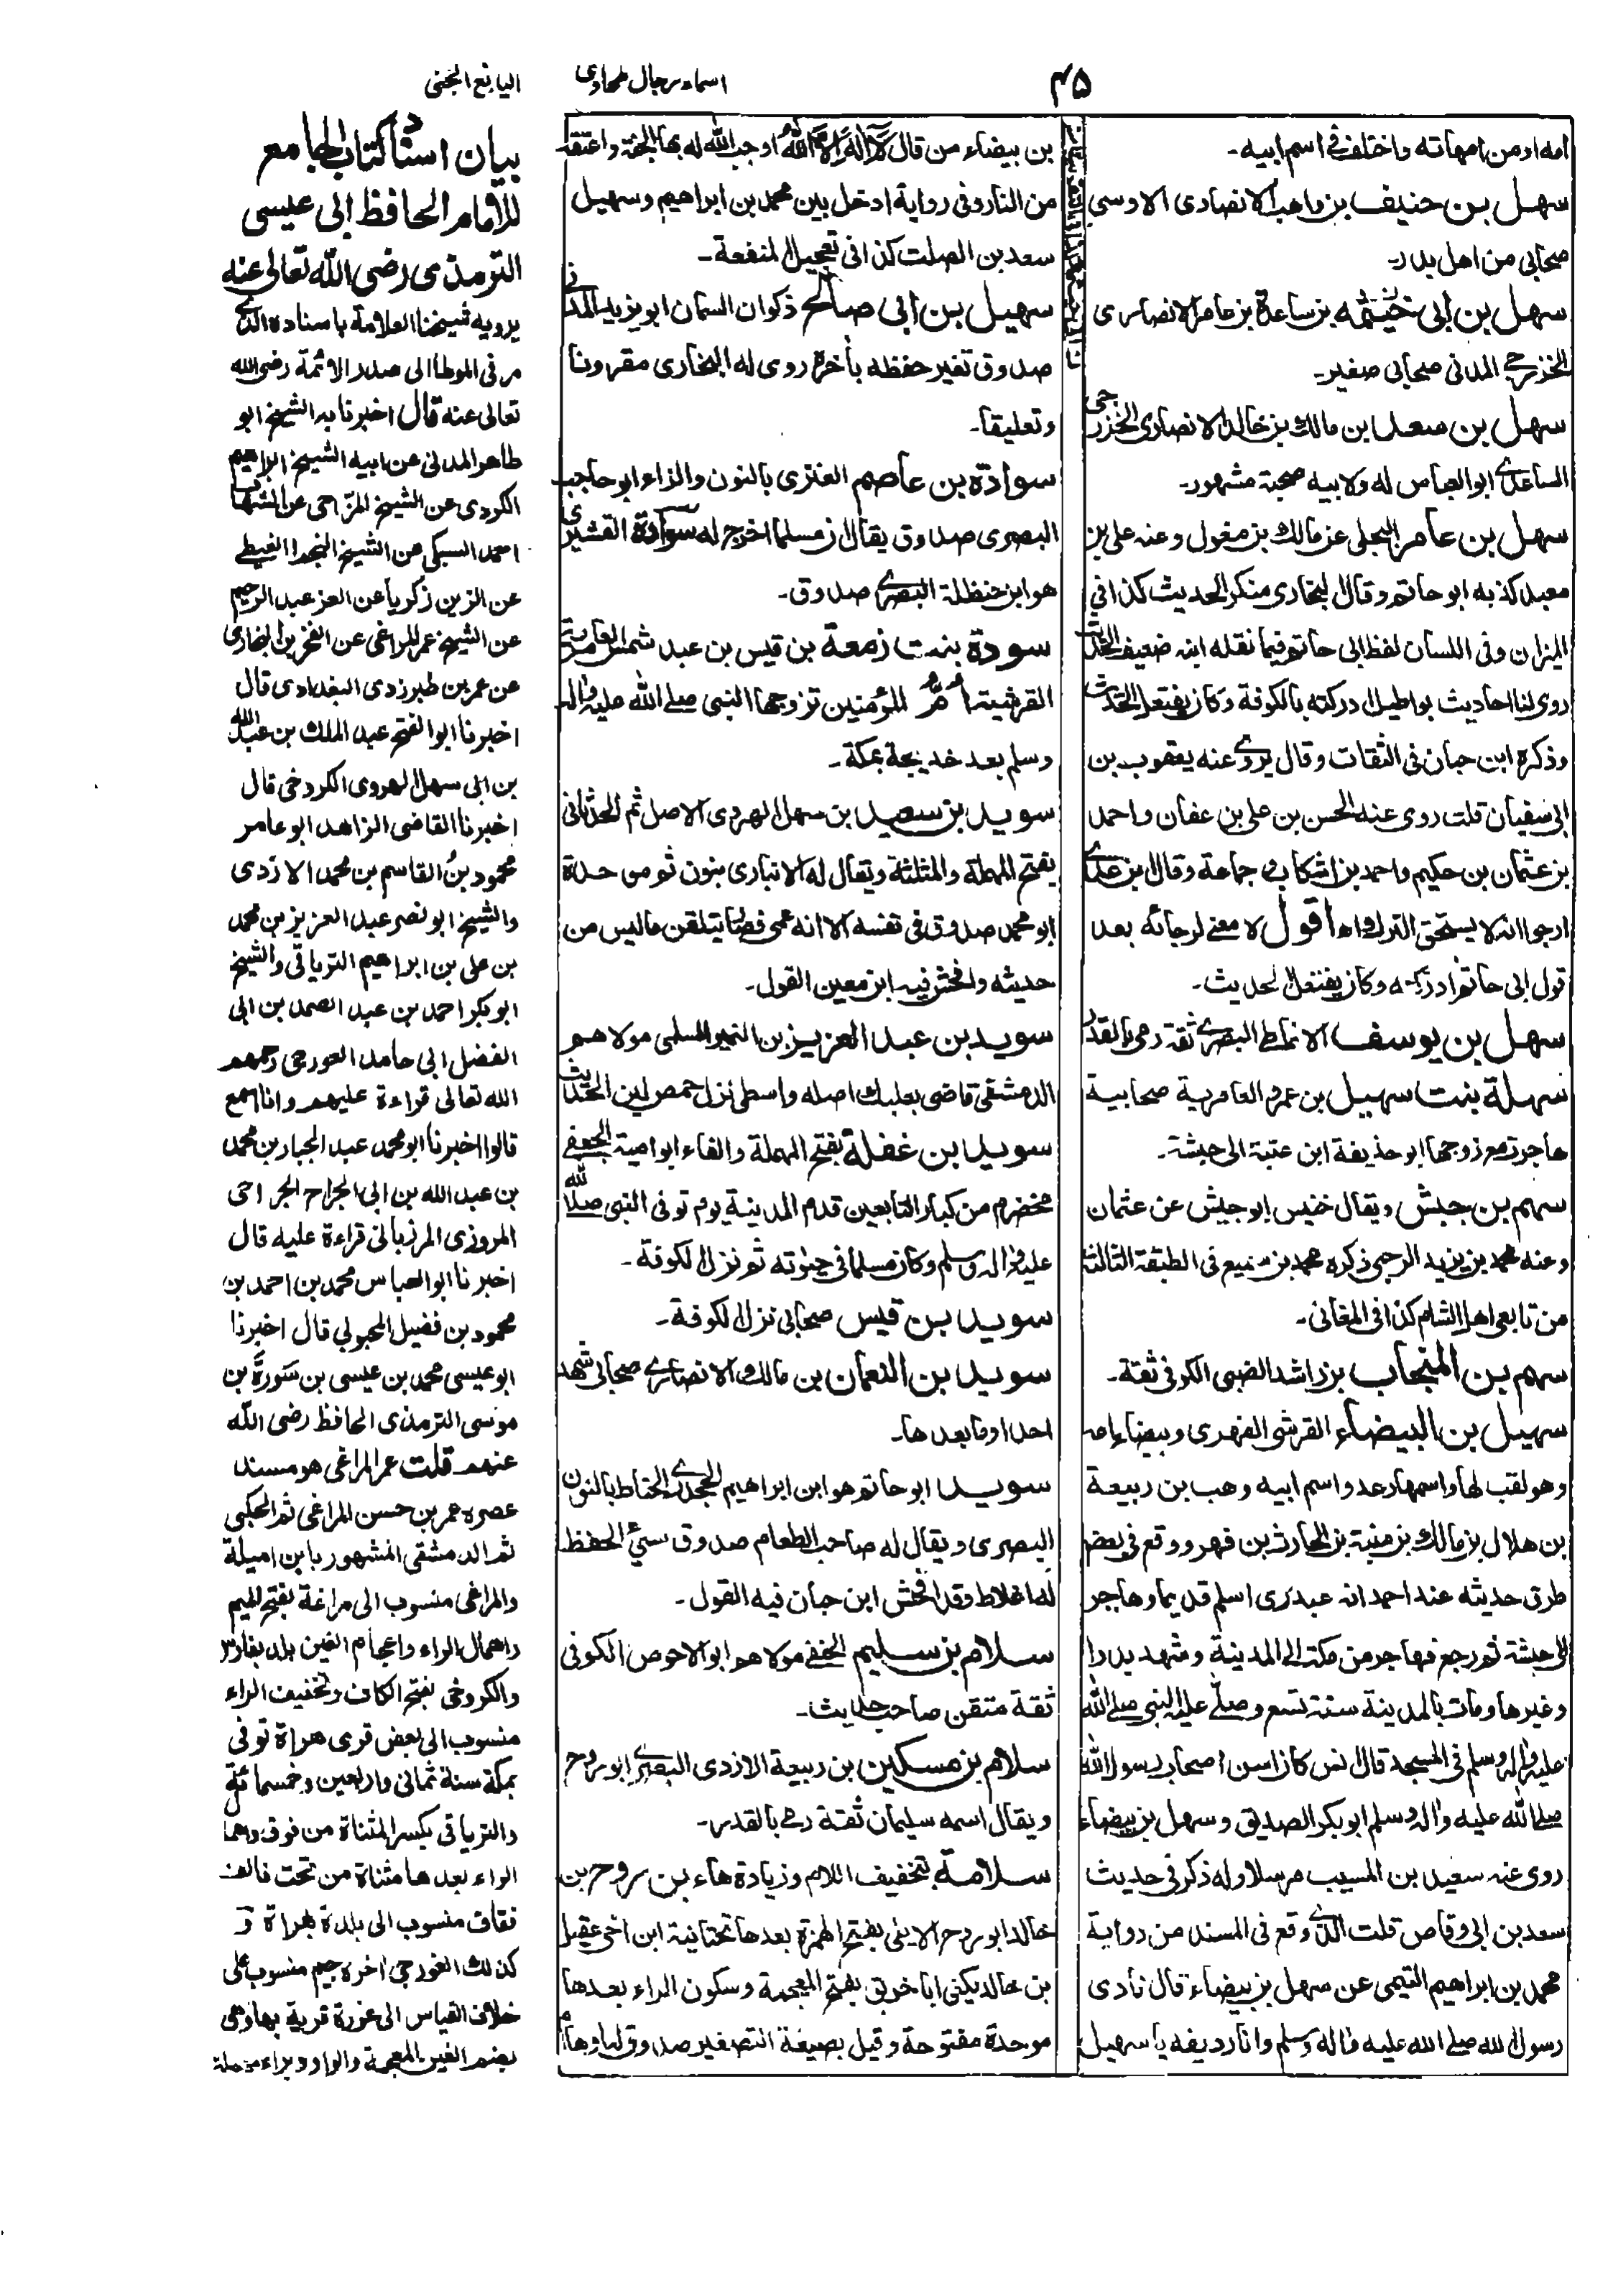 ۴۵
اسماء رجال طحاوی
اليانع الجنی
امه او من امهاته واختلف فی اسم ابيه۔
سهل بن حنيف بن واهب الانصاری الاوسی
صحابی من اهل بدر۔
سهل بن ابی خيثمه بن ساعدة بن عامر الانصاری
الخزرجی المدنی صحابی صغير۔
سهل بن سعد ابن مالك بن خالد الانصاری الخزرجی
الساعدی ابو العباس له ولابيه صحبة مشهور۔
سهل بن عامر البجلی عن مالك بن مغول وعنه علی بن
معبد كذبه ابو حاتم وقال البخاری منكر الحديث كذا فی
الميزان وفی اللسان لفظ ابی حاتم فيما نقله ابنه ضعيف الحديث
روی لنا احاديث بواطيل ادركته بالكوفة وكان يفتعل الحديث
وذكره ابن حبان فی الثقات وقال يروی عنه يعقوب بن
ابی سفيان قلت روی عنه الحسن بن علی بن عفان واحمد
بن عثمان بن حكيم واحمد بن اشكاب و جماعة وقال ابن عدی
ارجو انه لا يستحق الترك اه اقول لا معنے لرجائه بعد
قول ابی حاتم ادركته وكان يفتعل الحديث۔
سهل بن يوسف الانماطی البصری ثقة رمی بالقدر
سهلة بنت سهيل بن عمرو العامرية صحابية
هاجرت مع زوجها ابو حذيفة ابن عتبة الی حبشة۔
سهم بن حبش ويقال خنيس ابو حبيش عن عثمان
وعنه محمد بن يزيد الرحبی ذكره محمد بن سميع فی الطبقة الثالثة
من تابعی اهل الشام كذا فی المغانی۔
سهم بن المنجاب بن راشد الضبی الكوفی ثقة۔
سهيل بن البيضاء القرشی الفهری وبيضاء امه
وهو لقب لها واسمها رعد واسم ابيه وهب بن ربيعة
بن هلال بن مالك بن منبة بن الحارث بن فهر ووقع فی بعض
طرق حديثه عند احمد انه عبدری اسلم قديما وهاجر
الی حبشة ثم رجع فهاجر من مكة الی المدينة وشهد بدرا
وغيرها ومات بالمدينة سنة تسع وصلے عليه النبی صلے الله
عليه واله وسلم فی المسجد قال انس كان اسن اصحاب رسول الله
صلے الله عليه واله وسلم ابو بكر الصديق وسهل بن بيضاء
روی عنه سعيد بن المسيب مرسلا وله ذكر فی حديث
سعد بن ابی وقاص قلت الذی وقع فی المسند من رواية
محمد بن ابراهيم التيمی عن سهل بن بيضاء قال نادی
رسول الله صلے الله عليه واله وسلم وانا رديفه يا سهيل
بن بيضاء من قال لا اله الا الله اوجب الله له بها الجنة واعتقه
من النار وفی رواية ادخل بين محمد بن ابراهيم وسهيل
سعد بن الصلت كذا فی تعجيل المنفعة۔
سهيل بن ابی صالح ذكوان السمان ابو يزيد المدنی
صدوق تغير حفظه بأخرة روی له البخاری مقرونا
وتعليقا۔
سوادة بن عاصم العنزی بالنون والزاء ابو حاجب
البصری صدوق يقال ان مسلما اخرج له سوادة القشيری
هو ابن حنظلة البصری صدوق۔
سودة بنت زمعة بن قيس بن عبد شمس العامرية
القرشية ام المؤمنين تزوجها النبی صلے الله عليه واله
وسلم بعد خديجة بمكة۔
سويد بن سعيد بن سهل الهروی الاصل ثم الحدثانی
بفتح المهملة والمثلثة ويقال له الانباری بنون ثم موحدة
ابو محمد صدوق فی نفسه الا انه عمی فصار يتلقن ما ليس من
حديثه وافحش فيه ابن معين القول۔
سويد بن عبد العزيز بن النمير السلمی مولاهم
الدمشقی قاضی بعلبك اصله واسطی نزل حمص لين الحديث
سويد ابن غفلة بفتح المهملة والفاء ابو امية الجعفے
مخضرم من كبار التابعين قدم المدينة يوم توفی النبی صلے الله
عليه واله وسلم وكان مسلما فی حيوته ثم نزل الكوفة۔
سويد بن قيس صحابی نزل الكوفة۔
سويد بن النعمان بن مالك الانصاری صحابی شهد
احدا وما بعدها۔
سويد ابو حاتم هو ابن ابراهيم الجحدری الحناط بالنون
البصری ويقال له صاحب الطعام صدوق سیئ الحفظ
له اغلاط وقد افحش ابن حبان فيه القول۔
سلام بن سليم الحنفے مولاهم ابو الاحوص الكوفی
ثقة متقن صاحب حديث۔
سلام بن مسكين بن ربيعة الازدی البصری ابو روح
ويقال اسمه سليمان ثقة رمی بالقدر۔
سلامة بتخفيف اللام وزيادة هاء بن روح بن
خالد ابو روح الايلی بفتح الهمزة بعدها تحتانية ابن اخی عقيل
بن خالد يكنی ابا خربق بفتح المعجمة وسكون الراء بعدها
موحدة مفتوحة وقيل بصيغة التصغير صدوق له اوهام
بيان اسناد كتاب الجامع
للامام الحافظ ابی عيسی
الترمذی رضی الله تعالی عنه
يرويه شيخنا العلامة باسناده الذی
مر فی الموطا الی صدر الائمة رضی الله
تعالی عنه قال اخبرنا به الشيخ ابو
طاهر المدنی عن ابيه الشيخ ابراهيم
الكردی عن الشيخ المزاحی عن الشهاب
احمد السبكی عن الشيخ النجم الغيطے
عن الزين زكريا عن العز عبد الرحيم
عن الشيخ عمر المراغی عن الفخر بن البخاری
عن عمر بن طبرزدی البغدادی قال
اخبرنا ابو الفتح عبد الملك بن عبد الله
بن ابی سهل الهروی الكروخی قال
اخبرنا القاضی الزاهد ابو عامر
محمود بن القاسم بن محمد الازدی
والشيخ ابو نصر عبد العزيز بن محمد
بن علی بن ابراهيم الترياقی والشيخ
ابو بكر احمد بن عبد الصمد بن ابی
الفضل ابی حامد الغورجی رحمهم
الله تعالی قراءة عليهم وانا اسمع
قالوا اخبرنا ابو محمد عبد الجبار بن محمد
بن عبد الله بن ابی الجراح الجراحی
المروزی المرزبانی قراءة عليه قال
اخبرنا ابو العباس محمد بن احمد بن
محمود بن فضيل المحبوبی قال اخبرنا
ابو عيسی محمد بن عيسی بن سورة بن
موسی الترمذی الحافظ رضی الله
عنهم قلت عمر المراغی هو مسند
عصره عمر بن حسن المراغی ثم الحلبی
ثم الدمشقی المشهور بابن اميلة
والمراغی منسوب الی مراغة بفتح الميم
واهمال الراء واعجام الغين بلد بفارس
والكروخی بفتح الكاف وتخفيف الراء
منسوب الی بعض قری هراة توفی
بمكة سنة ثمانی واربعين وخمسمائة
والترياقی بكسر المثناة من فوق وهما
الراء بعدها مثناة من تحت فالف
فقاف منسوب الی بلدة بهراة و
كذلك الغورجی اخره جيم منسوب علی
خلاف القياس الی غورة قرية بها وهی
بضم الغين المعجمة والواو وبراء مهملة